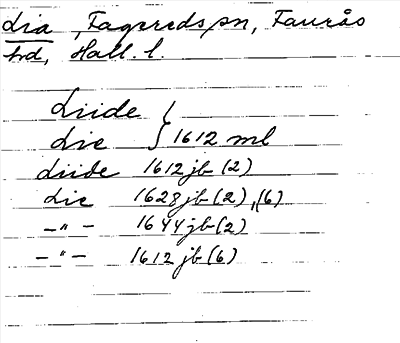 Lia, Fagereds sn, Faurås
hd, Hall. l.
Liide }
Lie } 1612 ml
Liide 1612 jb (2)
Lie 1628 jb (2), (6)
-"- 1644 jb (2)
-"- 1612 jb (6)